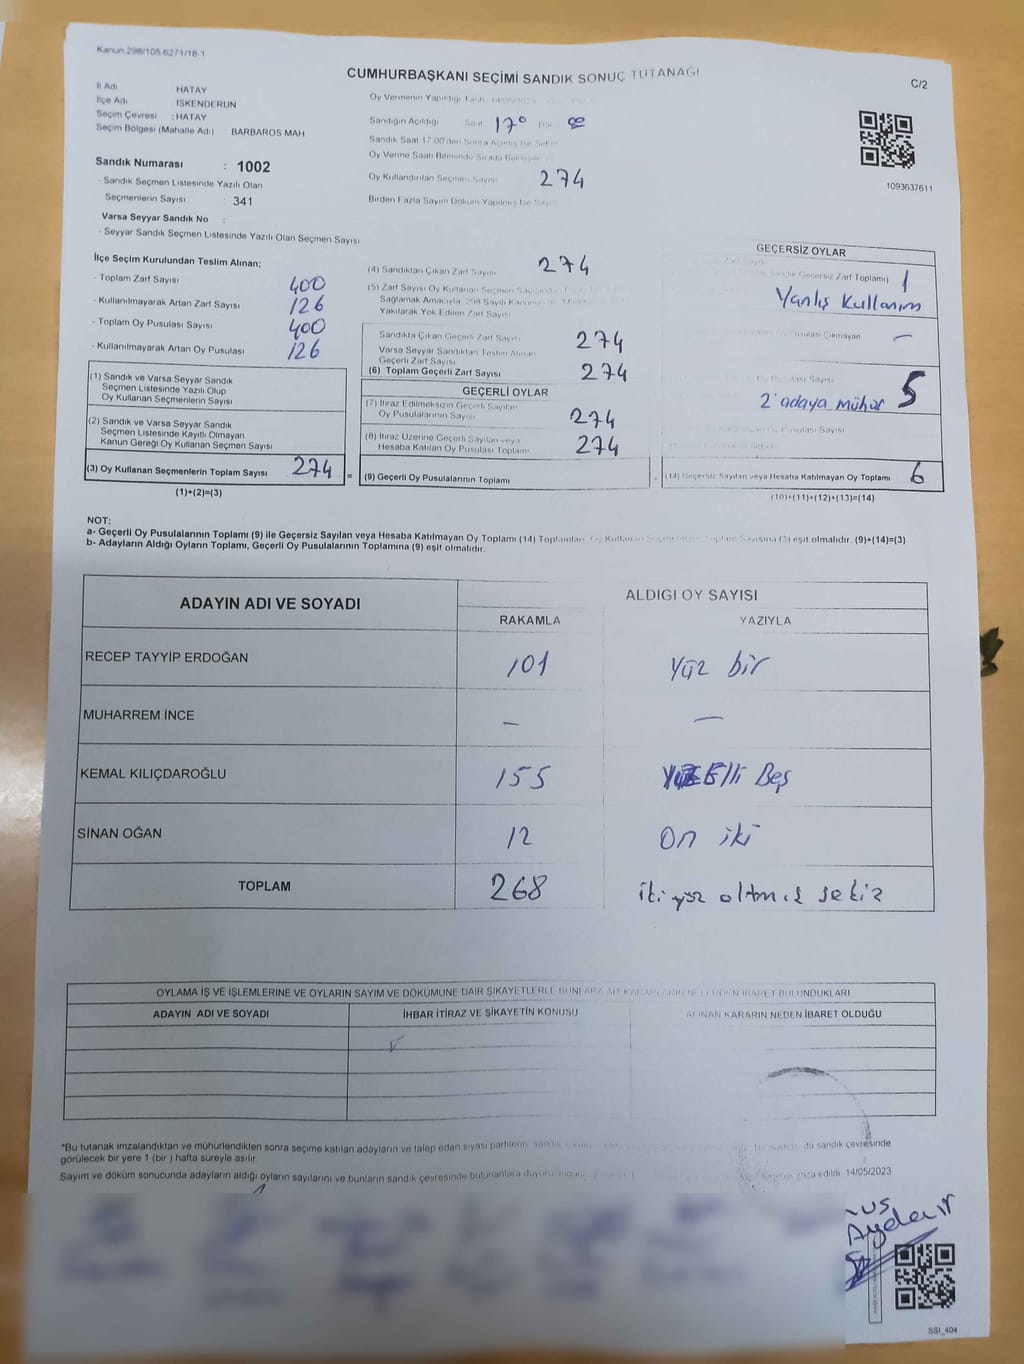 Kanun 298/105,6271/18-1
CUMHURBAŞKANI SEÇİMİ SANDIK SONUÇ TUTANAĞI
C/2
İl Adı : HATAY
İlçe Adı : İSKENDERUN
Seçim Çevresi : HATAY
Seçim Bölgesi (Mahalle Adı) : BARBAROS MAH
Sandık Numarası : 1002
- Sandık Seçmen Listesinde Yazılı Olan
Seçmenlerin Sayısı : 341
Varsa Seyyar Sandık No :
- Seyyar Sandık Seçmen Listesinde Yazılı Olan Seçmen Sayısı
Oy Vermenin Yapıldığı Tarih 14/05/2023
Sandığın Açıldığı Saat 17⁰
Sandık Saat 17:00'den Sonra Açılmış İse
Oy Verme Saati Bitiminde Sırada Bekleyen
Oy Kullandırılan Seçmen Sayısı 274
Birden Fazla Sayım Döküm Yapılmış İse
1093637611
İlçe Seçim Kurulundan Teslim Alınan;
- Toplam Zarf Sayısı 400
- Kullanılmayarak Artan Zarf Sayısı 126
- Toplam Oy Pusulası Sayısı 400
- Kullanılmayarak Artan Oy Pusulası 126
(1) Sandık ve Varsa Seyyar Sandık
Seçmen Listesinde Yazılı Olup
Oy Kullanan Seçmenlerin Sayısı
(2) Sandık ve Varsa Seyyar Sandık
Seçmen Listesinde Kayıtlı Olmayan
Kanun Gereği Oy Kullanan Seçmen Sayısı
(3) Oy Kullanan Seçmenlerin Toplam Sayısı 274 =
(1)+(2)=(3)
(4) Sandıktan Çıkan Zarf Sayısı 274
(5) Zarf Sayısı Oy Kullanan Seçmen Sayısından
Sağlamak Amacıyla 298 Sayılı Kanunun
Yakılarak Yok Edilen Zarf Sayısı
Sandıkta Çıkan Geçerli Zarf Sayısı 274
Varsa Seyyar Sandıktan Teslim Alınan
Geçerli Zarf Sayısı
(6) Toplam Geçerli Zarf Sayısı 274
GEÇERLİ OYLAR
(7) İtiraz Edilmeksizin Geçerli Sayılan
Oy Pusulalarının Sayısı 274
(8) İtiraz Üzerine Geçerli Sayılan veya
Hesaba Katılan Oy Pusulası Toplamı 274
(9) Geçerli Oy Pusulalarının Toplamı
GEÇERSİZ OYLAR
Sandık Geçersiz Zarf Toplamı) 1
Yanlış Kullanım
Oy Pusulası Çıkmayan —
Oy Pusulası Sayısı 5
2 adaya mühür
Oy Pusulası Sayısı
(14) Geçersiz Sayılan veya Hesaba Katılmayan Oy Toplamı 6
(10)+(11)+(12)+(13)=(14)
NOT:
a- Geçerli Oy Pusulalarının Toplamı (9) ile Geçersiz Sayılan veya Hesaba Katılmayan Oy Toplamı (14) Toplamları, Oy Kullanan Seçmenlerin Toplam Sayısına (3) eşit olmalıdır. (9)+(14)=(3)
b- Adayların Aldığı Oyların Toplamı, Geçerli Oy Pusulalarının Toplamına (9) eşit olmalıdır.
ADAYIN ADI VE SOYADI
ALDIĞI OY SAYISI
RAKAMLA YAZIYLA
RECEP TAYYİP ERDOĞAN 101 Yüz bir
MUHARREM İNCE — —
KEMAL KILIÇDAROĞLU 155 Yüz Elli Beş
SİNAN OĞAN 12 On iki
TOPLAM 268 iki yüz altmış sekiz
OYLAMA İŞ VE İŞLEMLERİNE VE OYLARIN SAYIM VE DÖKÜMÜNE DAİR ŞİKAYETLERLE BUNLARA AİT KARARLARIN NELERDEN İBARET BULUNDUKLARI
ADAYIN ADI VE SOYADI İHBAR İTİRAZ VE ŞİKAYETİN KONUSU ALINAN KARARIN NEDEN İBARET OLDUĞU
*Bu tutanak imzalandıktan ve mühürlendikten sonra seçime katılan adayların ve talep eden siyasi partilerin sandık çevresinde
görülecek bir yere 1 (bir) hafta süreyle asılır.
Sayım ve döküm sonucunda adayların aldığı oyların sayılarını ve bunların sandık çevresinde bulunanlara imza edildi. 14/05/2023
Aydemir
SSI_404